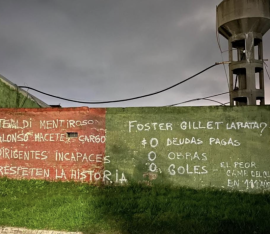 TEBALDI MENTIROSO
ALONSO MACETE CARGO
DIRIGENTES INCAPACES
RESPETEN LA HISTORIA
FOSTER GILLET LARATA?
$0 DEUDAS PAGAS
0 OBRAS
0 GOLES
EL PEOR
CAMP DEL
EN 119